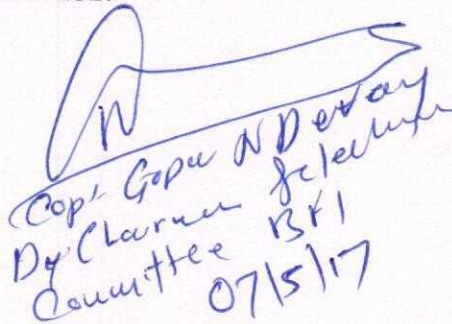 Capt Gopu N Devan
Dy Chairman Selection
Committee BFI
07/5/17